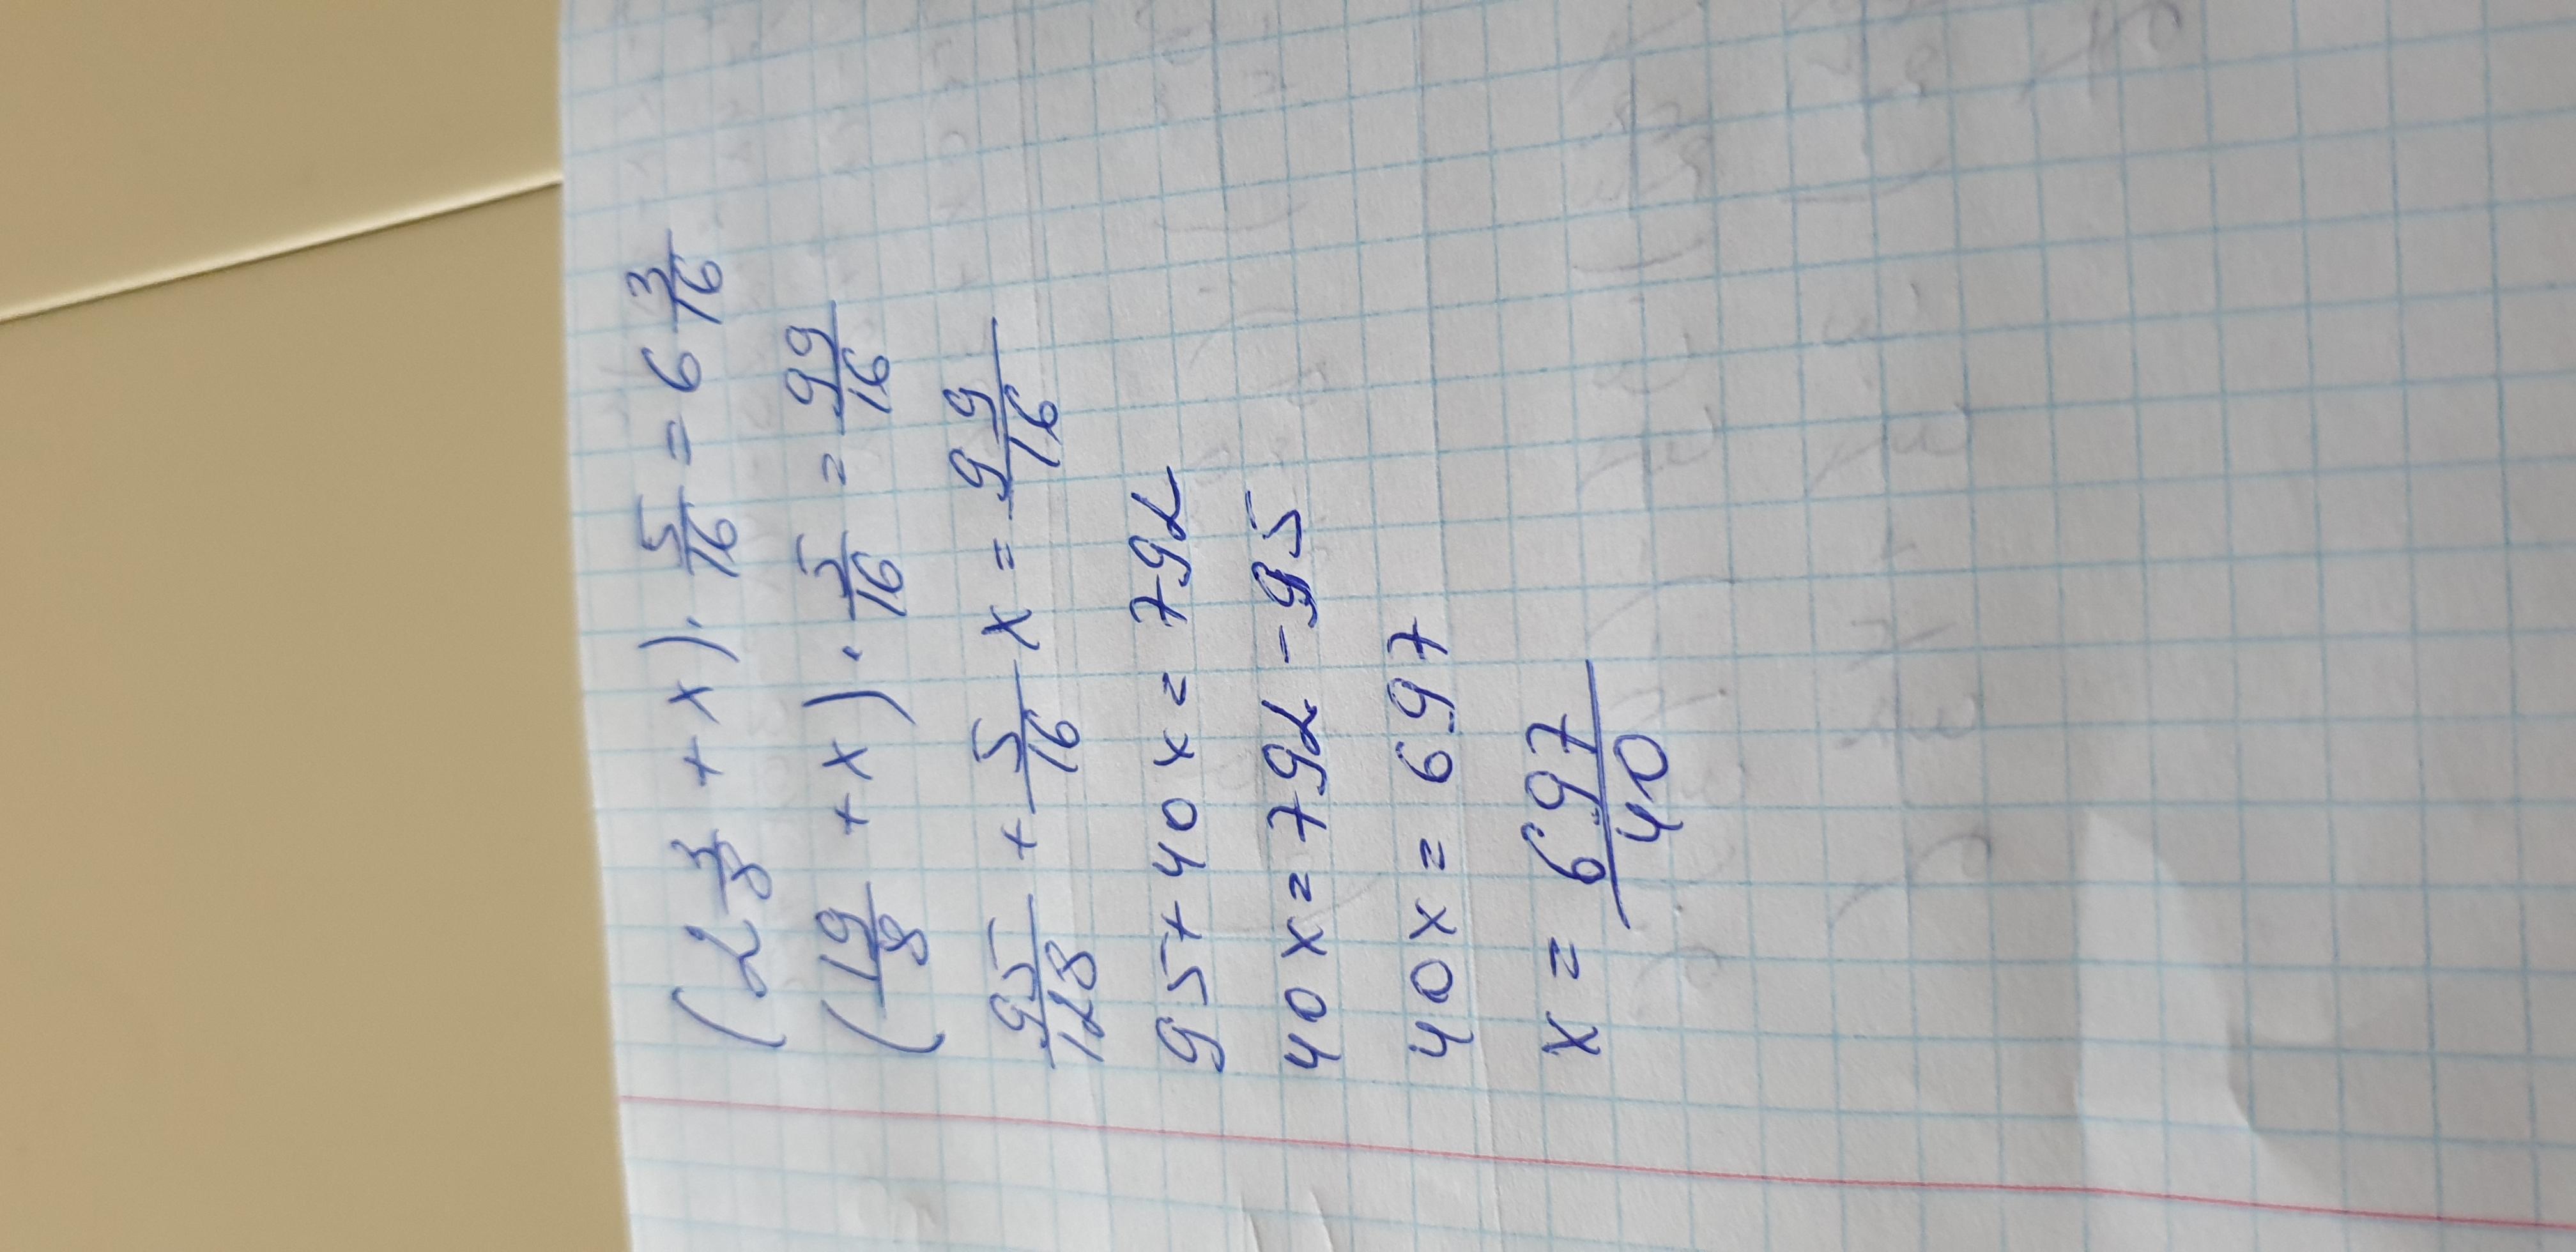 (2 3/8 + x) · 5/16 = 6 3/16
(19/8 + x) · 5/16 = 99/16
95/128 + 5/16 x = 99/16
95 + 40x = 792
40x = 792 - 95
40x = 697
x = 697/40